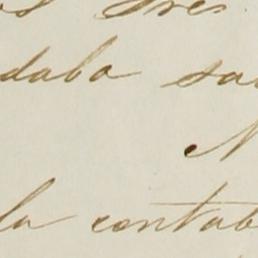 tres
daba sa
N
la contab